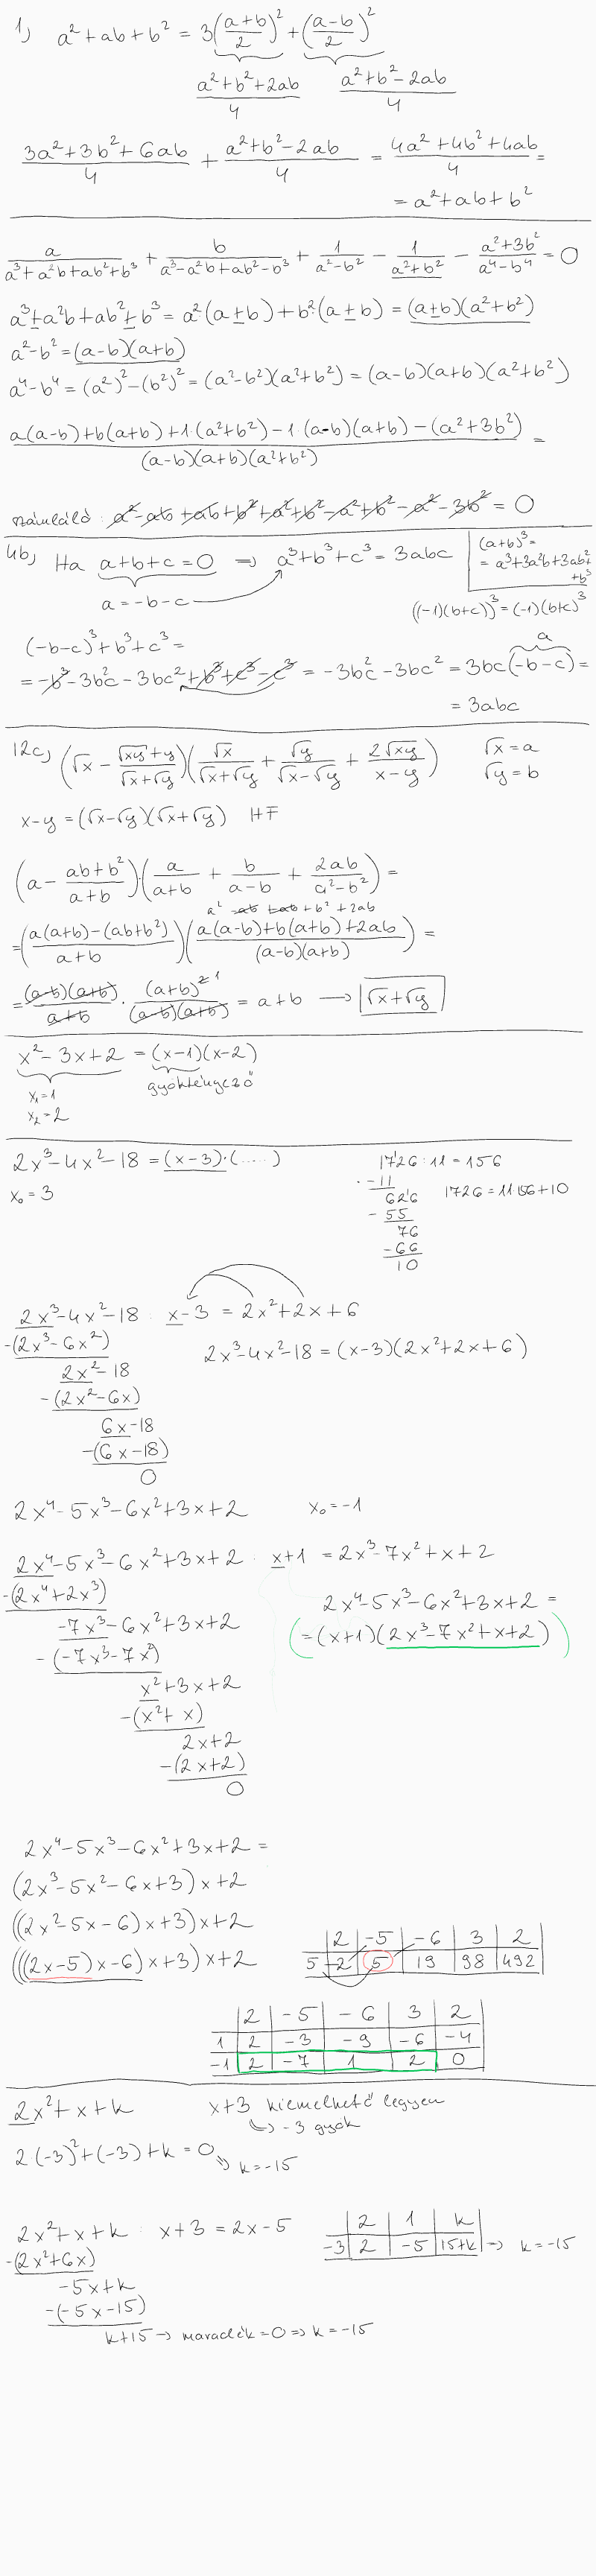 1) a² + ab + b² = 3((a+b)/2)² + ((a-b)/2)²
(a²+b²+2ab)/4 (a²+b²-2ab)/4
(3a²+3b²+6ab)/4 + (a²+b²-2ab)/4 = (4a²+4b²+4ab)/4 =
= a²+ab+b²
a/(a³+a²b+ab²+b³) + b/(a³-a²b+ab²-b³) + 1/(a²-b²) - 1/(a²+b²) - (a²+3b²)/(a⁴-b⁴) = 0
a³±a²b+ab²±b³ = a²·(a±b)+b²·(a±b) = (a±b)(a²+b²)
a²-b² = (a-b)(a+b)
a⁴-b⁴ = (a²)²-(b²)² = (a²-b²)(a²+b²) = (a-b)(a+b)(a²+b²)
(a(a-b)+b(a+b)+1·(a²+b²)-1·(a-b)(a+b)-(a²+3b²))/((a-b)(a+b)(a²+b²)) =
számláló: a²-ab+ab+b²+a²+b²-a²+b²-a²-3b² = 0
4b) Ha a+b+c=0 ⇒ a³+b³+c³ = 3abc
(a+b)³ =
= a³+3a²b+3ab²+
+b³
a = -b-c
((-1)(b+c))³ = (-1)(b+c)³
(-b-c)³+b³+c³ =
a
= -b³-3b²c-3bc²+b³+c³-c³ = -3b²c-3bc² = 3bc(-b-c) =
= 3abc
12c) (√x - (√xy+y)/(√x+√y))(√x/(√x+√y) + √y/(√x-√y) + 2√xy/(x-y)) √x = a
√y = b
x-y = (√x-√y)(√x+√y) HF
(a - (ab+b²)/(a+b))·(a/(a+b) + b/(a-b) + 2ab/(a²-b²)) =
a² -ab +ab +b² +2ab
= ((a(a+b)-(ab+b²))/(a+b))((a(a-b)+b(a+b)+2ab)/((a-b)(a+b))) =
= ((a-b)(a+b))/(a+b) · (a+b)²/((a-b)(a+b)) = a+b → √x+√y
x²-3x+2 = (x-1)(x-2)
x₁=1 gyöktényező
x₂=2
2x³-4x²-18 = (x-3)·(.....)
x₀ = 3
1726 : 11 = 156
-11
626 1726 = 11·156+10
- 55
76
-66
10
2x³-4x²-18 : x-3 = 2x²+2x+6
-(2x³-6x²)
2x³-4x²-18 = (x-3)(2x²+2x+6)
2x²-18
-(2x²-6x)
6x-18
-(6x-18)
0
2x⁴-5x³-6x²+3x+2 x₀ = -1
2x⁴-5x³-6x²+3x+2 : x+1 = 2x³-7x²+x+2
-(2x⁴+2x³)
2x⁴-5x³-6x²+3x+2 =
-7x³-6x²+3x+2
(=(x+1)(2x³-7x²+x+2))
-(-7x³-7x²)
x²+3x+2
-(x²+x)
2x+2
-(2x+2)
0
2x⁴-5x³-6x²+3x+2 =
(2x³-5x²-6x+3)x+2
((2x²-5x-6)x+3)x+2
(((2x-5)x-6)x+3)x+2
2 -5 -6 3 2
5 2 5 19 98 492
2 -5 -6 3 2
1 2 -3 -9 -6 -4
-1 2 -7 1 2 0
2x²+x+k x+3 kiemelhető legyen
↳ -3 gyök
2·(-3)²+(-3)+k = 0
⇒ k=-15
2x²+x+k : x+3 = 2x-5
-(2x²+6x)
2 1 k
-3 2 -5 15+k → k=-15
-5x+k
-(-5x-15)
k+15 → maradék = 0 ⇒ k=-15